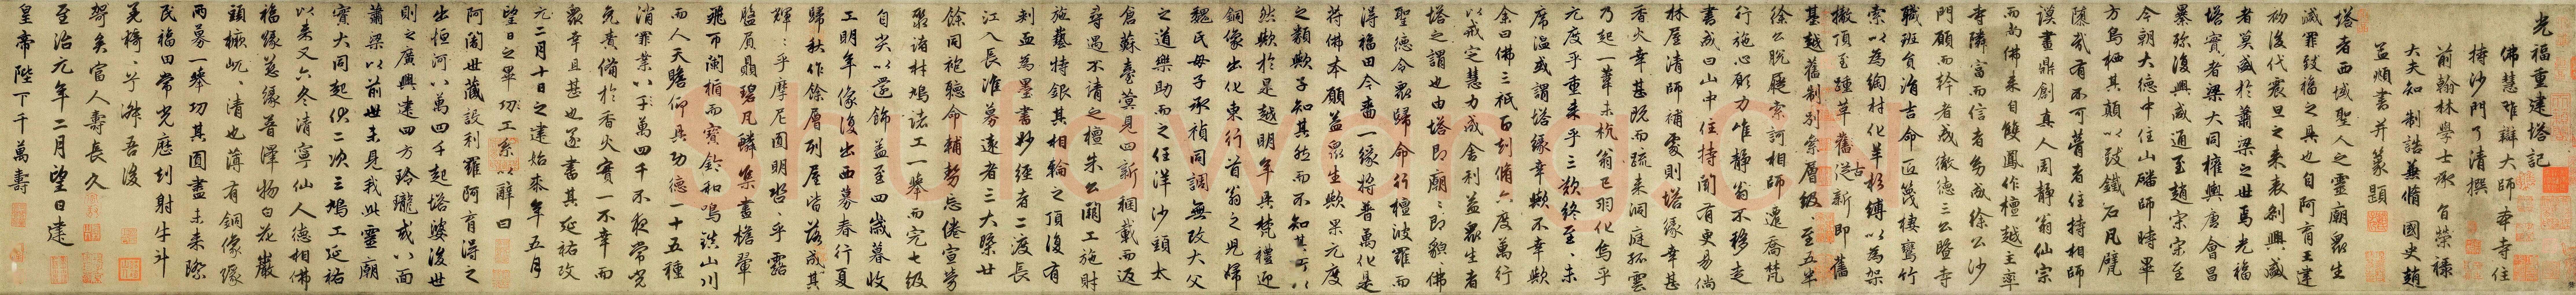 光福重建塔記
佛慧雄辯大師奉寺住
持沙門了清撰
前翰林學士承旨榮祿
大夫知制誥兼脩國史趙
孟頫書并篆題
塔者西域聖人之靈廟眾生
滅罪致福之具也自阿育王建
初後代震旦之來表剏興盛
者莫盛於蕭梁之世焉光福
塔寶者梁大同權輿唐會昌
暴殄復興咸通至趙宋宗至
今朝大德中住山磻師時畢
方烏栖其顛以致鐵石凡甓
隳哉有不可瞢者住持相師
謨畫鼎創真人周靜翁仙宗
而尚佛來自雙鳳作檀越主率
寺隣富而信者多成徐公沙
門願而幹者成徹德三公曁寺
職班負洎古命匠篾棲鸞竹
索以為綯材化羊杉縛以為架
撤頂至踵革舊從新即舊
基越舊制別案層級至五半
徐公脫屣索訶相師還喬梵
行施心願力唯靜翁不移走
書成曰山中住持閒有更易倘
林屋清師補處則塔緣幸甚
香火幸甚既而疏來洞庭孤雲
乃起一葦未杭翁已羽化烏乎
元度乎重來乎三歎終至未
席溫或謂塔緣幸歟不幸歟
余曰佛三祇百劫脩六度萬行
以戒定慧力成舍利益眾生者
塔之謂也由塔即廟廟即貌佛
聖德令眾歸命行檀波羅而
得福田今嗇一緣將普萬化是
符佛本願益眾生歟果元度
之類歟子知其然而不知其所以
然歟於是越明年具梵禮迎
銅像出化東行首翁之兒婦
魏氏母子承禎同調無改大父
之道樂助而之任洋沙頭太
倉蘇臺蓂見四新稇載而返
尋遇不請之檀朱公闢工施財
施藝特銀其相輪之頂復有
刺血為墨書妙經者二渡長
江入長淮募遠者三大檠廿
餘同袍聽命輔勢忘倦宣勞
聚諸材鳩諸工一舉而完七級
自尖以還飾益至四歲暮收
工明年像復出西募春行夏
歸秋作餘層列屋皆落成其
輝輝乎摩尼圓明呰呰乎露
盤贔屓碧凡鱗集畫檐翬
飛帀闌楯而寶鈴和鳴鎮山川
而人天瞻仰具功德一十五種
消罪業以于萬四千不夜常光
免責備於香火實一不幸而
眾幸且甚也遂書其延祐攻
元二月十日之建始來年五月
望日之畢功工系以辭曰
阿闍世藏設利羅阿育得之
出恒河八萬四千起塔婆後世
則之廣興建四方玲瓏或八面
蕭梁以前世未見我此靈廟
實大同起仆二次三鳩工延祐
以來又六冬清寧仙人德相佛
福緣慈緣普澤物白花巖
頭橛屼屼清也薄有銅像隊
兩募一舉功其圓盡未來際
民福田常光應刻射牛斗
羌檮兮舜吾後
朞矣富人壽長久
至治元年二月望日建
皇帝陛下千萬壽